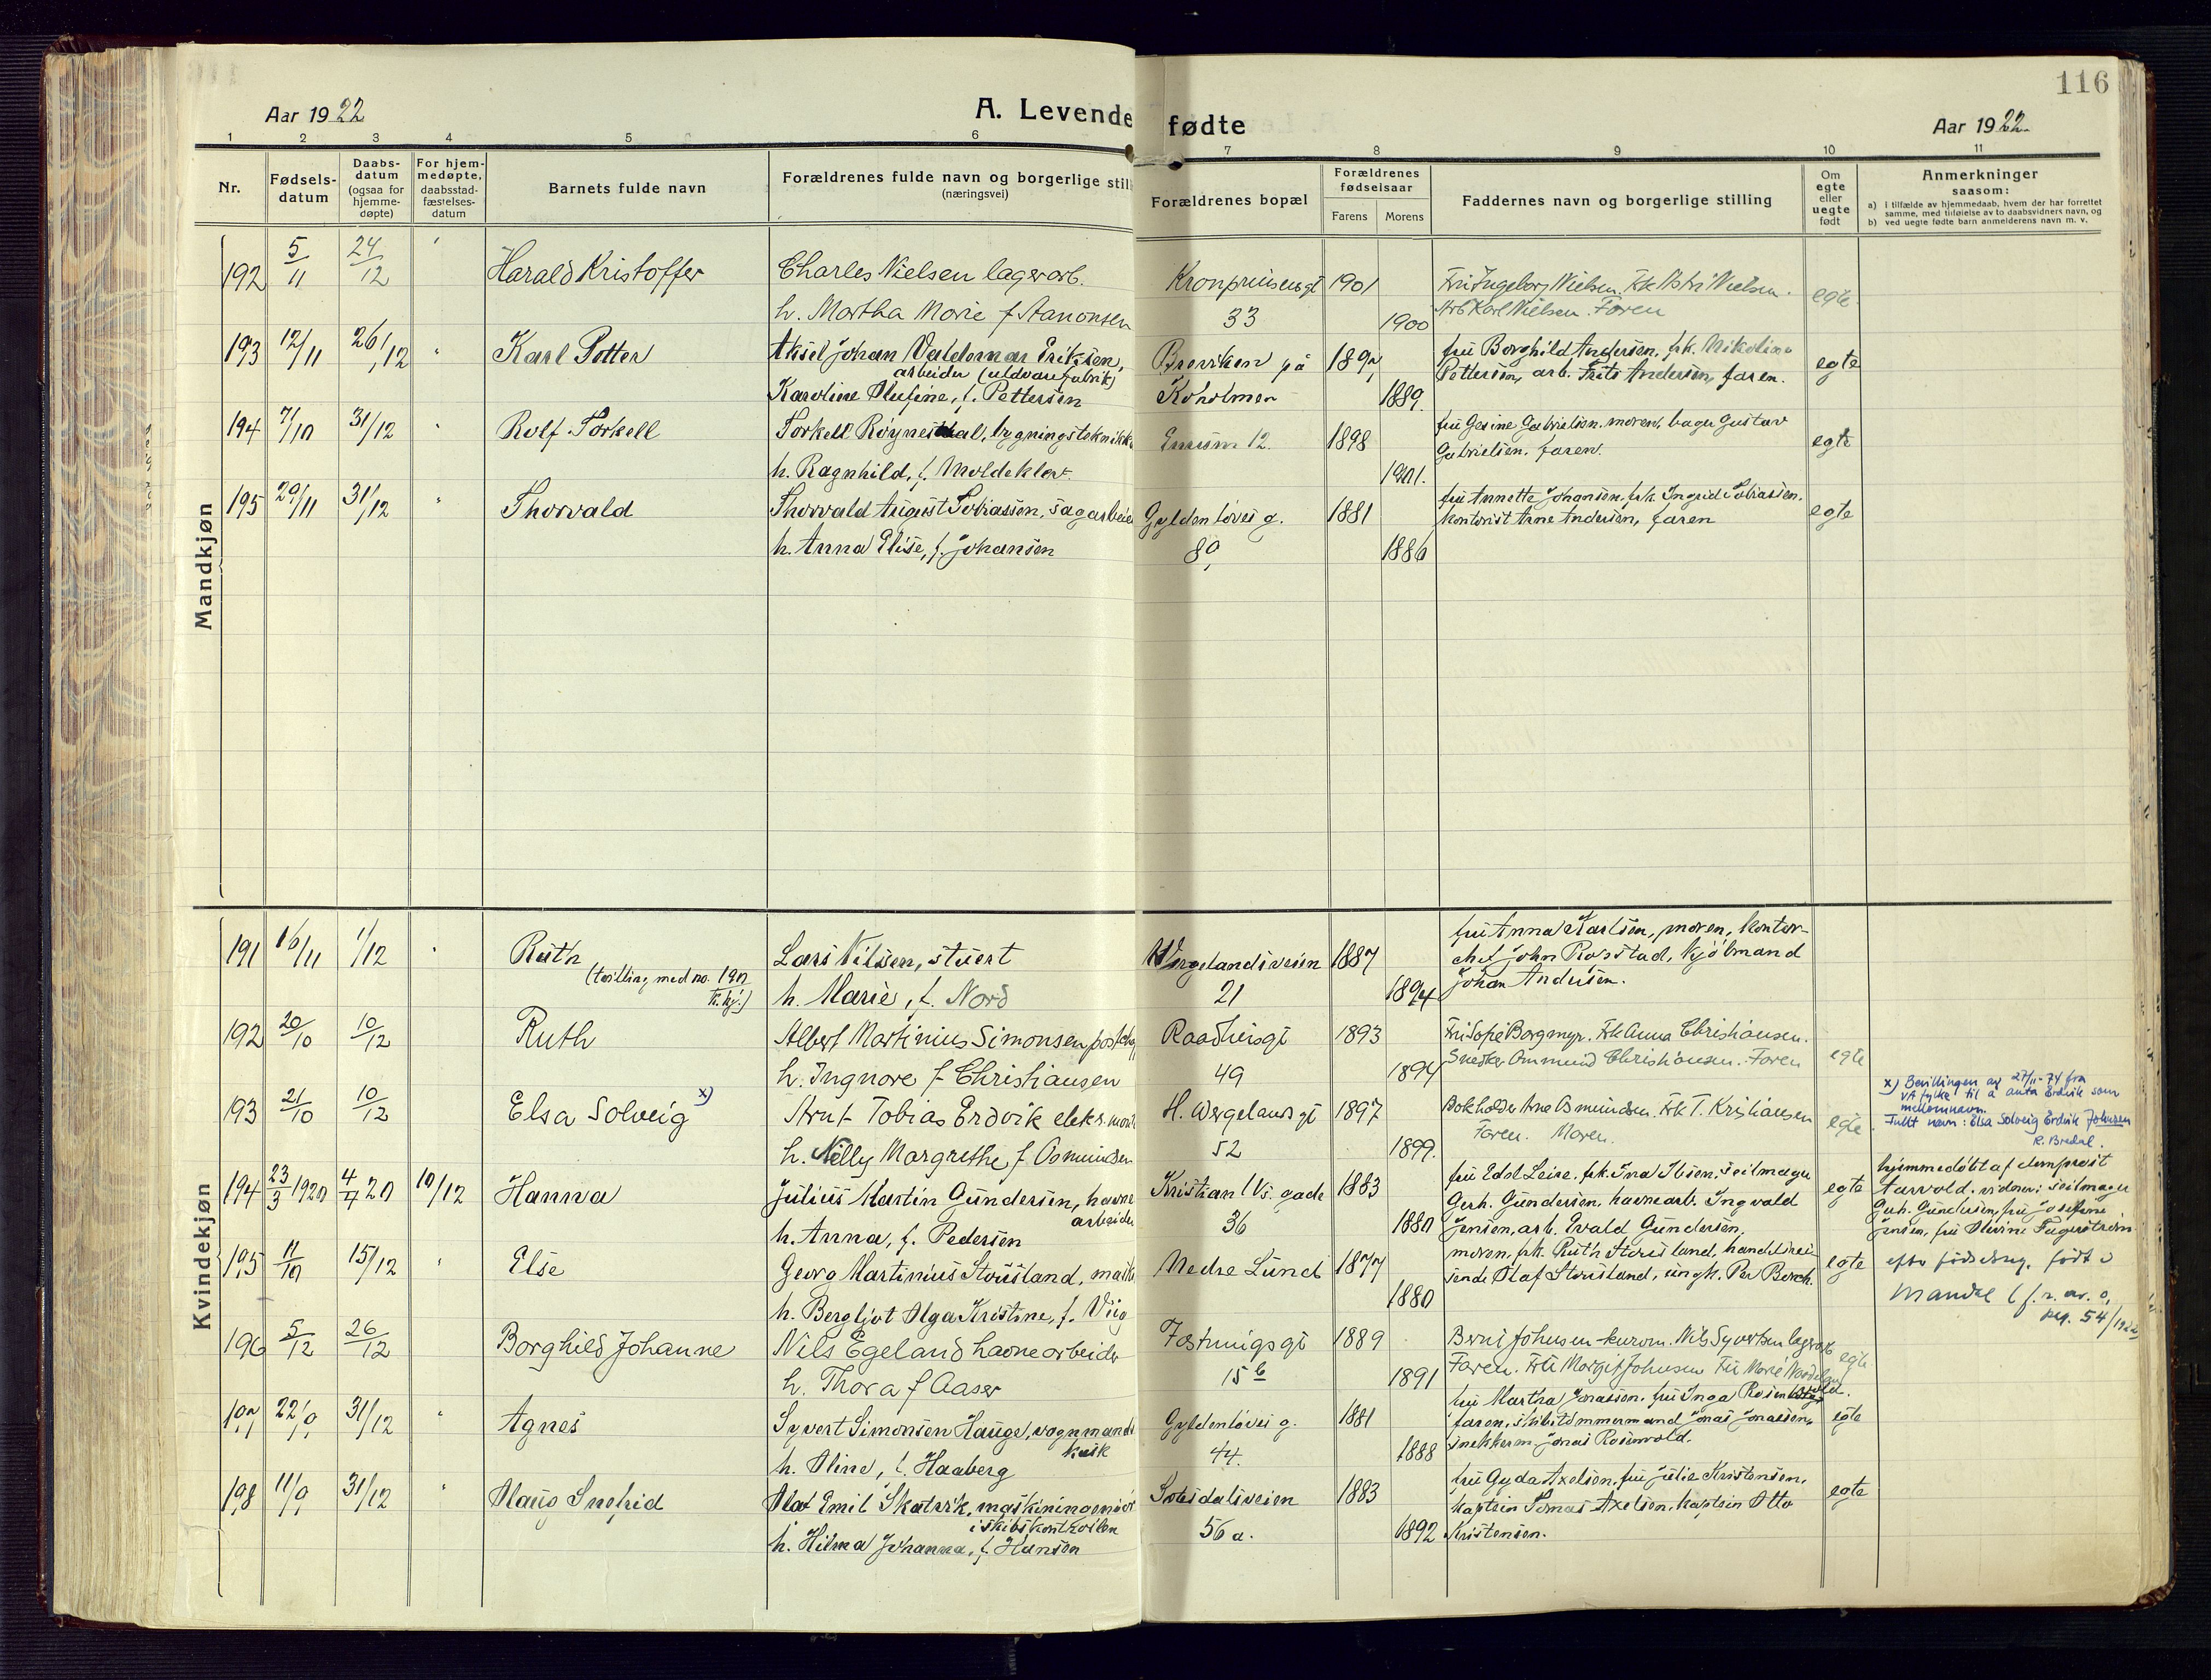 116
Aar 1922
A. Levende fødte
Aar 1922.
1 2 3 4 5 6 7 8 9 10 11
Nr.
Fødsels-
datum
Daabs-
datum
(ogsaa for
hjemme-
døpte)
For hjem-
medøpte,
daabsstad-
fæstelses-
datum
Barnets fulde navn
Forældrenes fulde navn og borgerlige stil
(næringsvei)
Forældrenes bopæl
Forældrenes
fødselsaar
Farens Morens
Faddernes navn og borgerlige stilling
Om
egte
eller
uegte
født
Anmerkninger
saasom:
a) i tilfælde av hjemmedaab, hvem der har forrettet
samme, med tilføielse av to daabsvidners navn, og
b) ved uegte fødte barn anmelderens navn m. v.
Mandkjøn
192 5/11 24/12 Harald Kristoffer Charles Nielsen lagerarb. Kronprinsensgt 1901 Fru Ingeborg Nielsen. Nielsen.
h. Martha Marie f Aanonsen 33 1900 Arb Karl Nielsen. Faren egte
193 12/11 26/12 " Karl Petter Aksel Johan Valdemar Eriksen, på 189 fru Borghild Andersen, frk. Nikoline
arbeider (uldvarefabrik) Pettersen, arb. Frits Andersen, faren. egte
Karoline Olufine, f. Pettersen Koholmen 1889.
194 7/10 31/12 " Rolf Torkell Torkell Røynesdal, bygningsteknikk 12. 1898 fru Gesine Gabrielsen. moren, Gustav
Gabrielsen. faren. egte
h. Ragnhild, f. Moldeklev. 1901.
195 20/11 31/12 " Thorvald Thorvald August Tobiassen, sagarbeide Gyldenløves g. 1881 fru Annette Johansen, frk. Ingrid Tobiassen.
kontorist Arne Andersen, faren egte
h. Anna Elise, f. Johansen 80, 1886
Kvindekjøn
191 16/11 1/12 " Ruth Lars Nilsen, stuert Wergelandsveien 1887 fru Anna Karlsen, moren, kontor-
chef John Rosstad, kjølmand
(tvilling med no. 190
k.kj.) h. Marie, f. Nord 21 1894 Johan Andersen.
192 20/10 10/12 Ruth Albert Martinius Simonsen Raadhusgt 1893 Fru Sofie Borgmyr. Frk Anna Christiansen.
h. Ingnore f Christiansen 49 1894 Snedker Ommund Christiansen. Faren egte
193 21/10 10/12 Elsa Solveig x) Arnt Tobias Erdvik H. Wergelands gt 1897 Bokholder Arne Osmundsen. Frk T. Kristiansen
h. Nelly Margrethe f Osmundsen 52 1899. Faren. Moren. egte
x) Bevillingen av 27/11-74 fra
VA fylke til å anta Erdvik som
mellomnavn.
Fullt navn: Elsa Solveig Erdvik Johnsen
R. Bredal.
194 23/3 1920 4/7 20 10/12 Hanna Julius Martin Gundersen, havne Kristian IVs. gade 1883 fru Edel Leire. frk. Ina Ibsen. seilmager
arbeider 36 1880 Gerh. Gundersen, havnearb. Ingvald
h. Anna, f. Pedersen Jensen, arb. Evald Gundersen, egte
hjemmedøbt af domprost
Aarvold. vidner: seilmager
Gerh. Gundersen, fru Josefine
Jensen, fru Olevine Fagerstrøm
195 11/10 15/12 " Else Georg Martinius Stousland, Nedre Lund 1877 moren, frk. Ruth Stousland, handelsrei-
sende Olaf Stousland, ungk. Per Borch. egte
h. Bergljot Olga Kristine, f. Vig 1880
efter fødselsreg. født i
Mandal
pag. 54/
196 5/12 26/12 Borghild Johanne Nils Egeland havnearbeider Festningsgt 1889 Johnsen Nils Syvertsen
h. Thora f Aaser 15 b 1891 Faren. Frk Margit Johnsen Fru Marie egte
197 31/12 " Agnes Syvert Simonsen Hauge, vognmands Gyldenløves g. 1881 fru Martha Jonassen. fru Inga Rosenvold.
kusk faren, skibstømmermand Jonas Jonassen, egte
h. Oline, f. Haaberg 44. 1888 snekkerm. Jonas Rosenvold.
198 11/9 31/12 " Olaug Snefrid Olaf Emil Skatvik, maskiningeniør Setesdalsveien 1883 fru Gyda Axelsen, fru Julie Kristensen,
i skibskontrollen kaptein Tomas Axelsen, kaptein Otto egte
h. Hilma Johanna, f. Hansen 56 a. 1892 Kristensen.